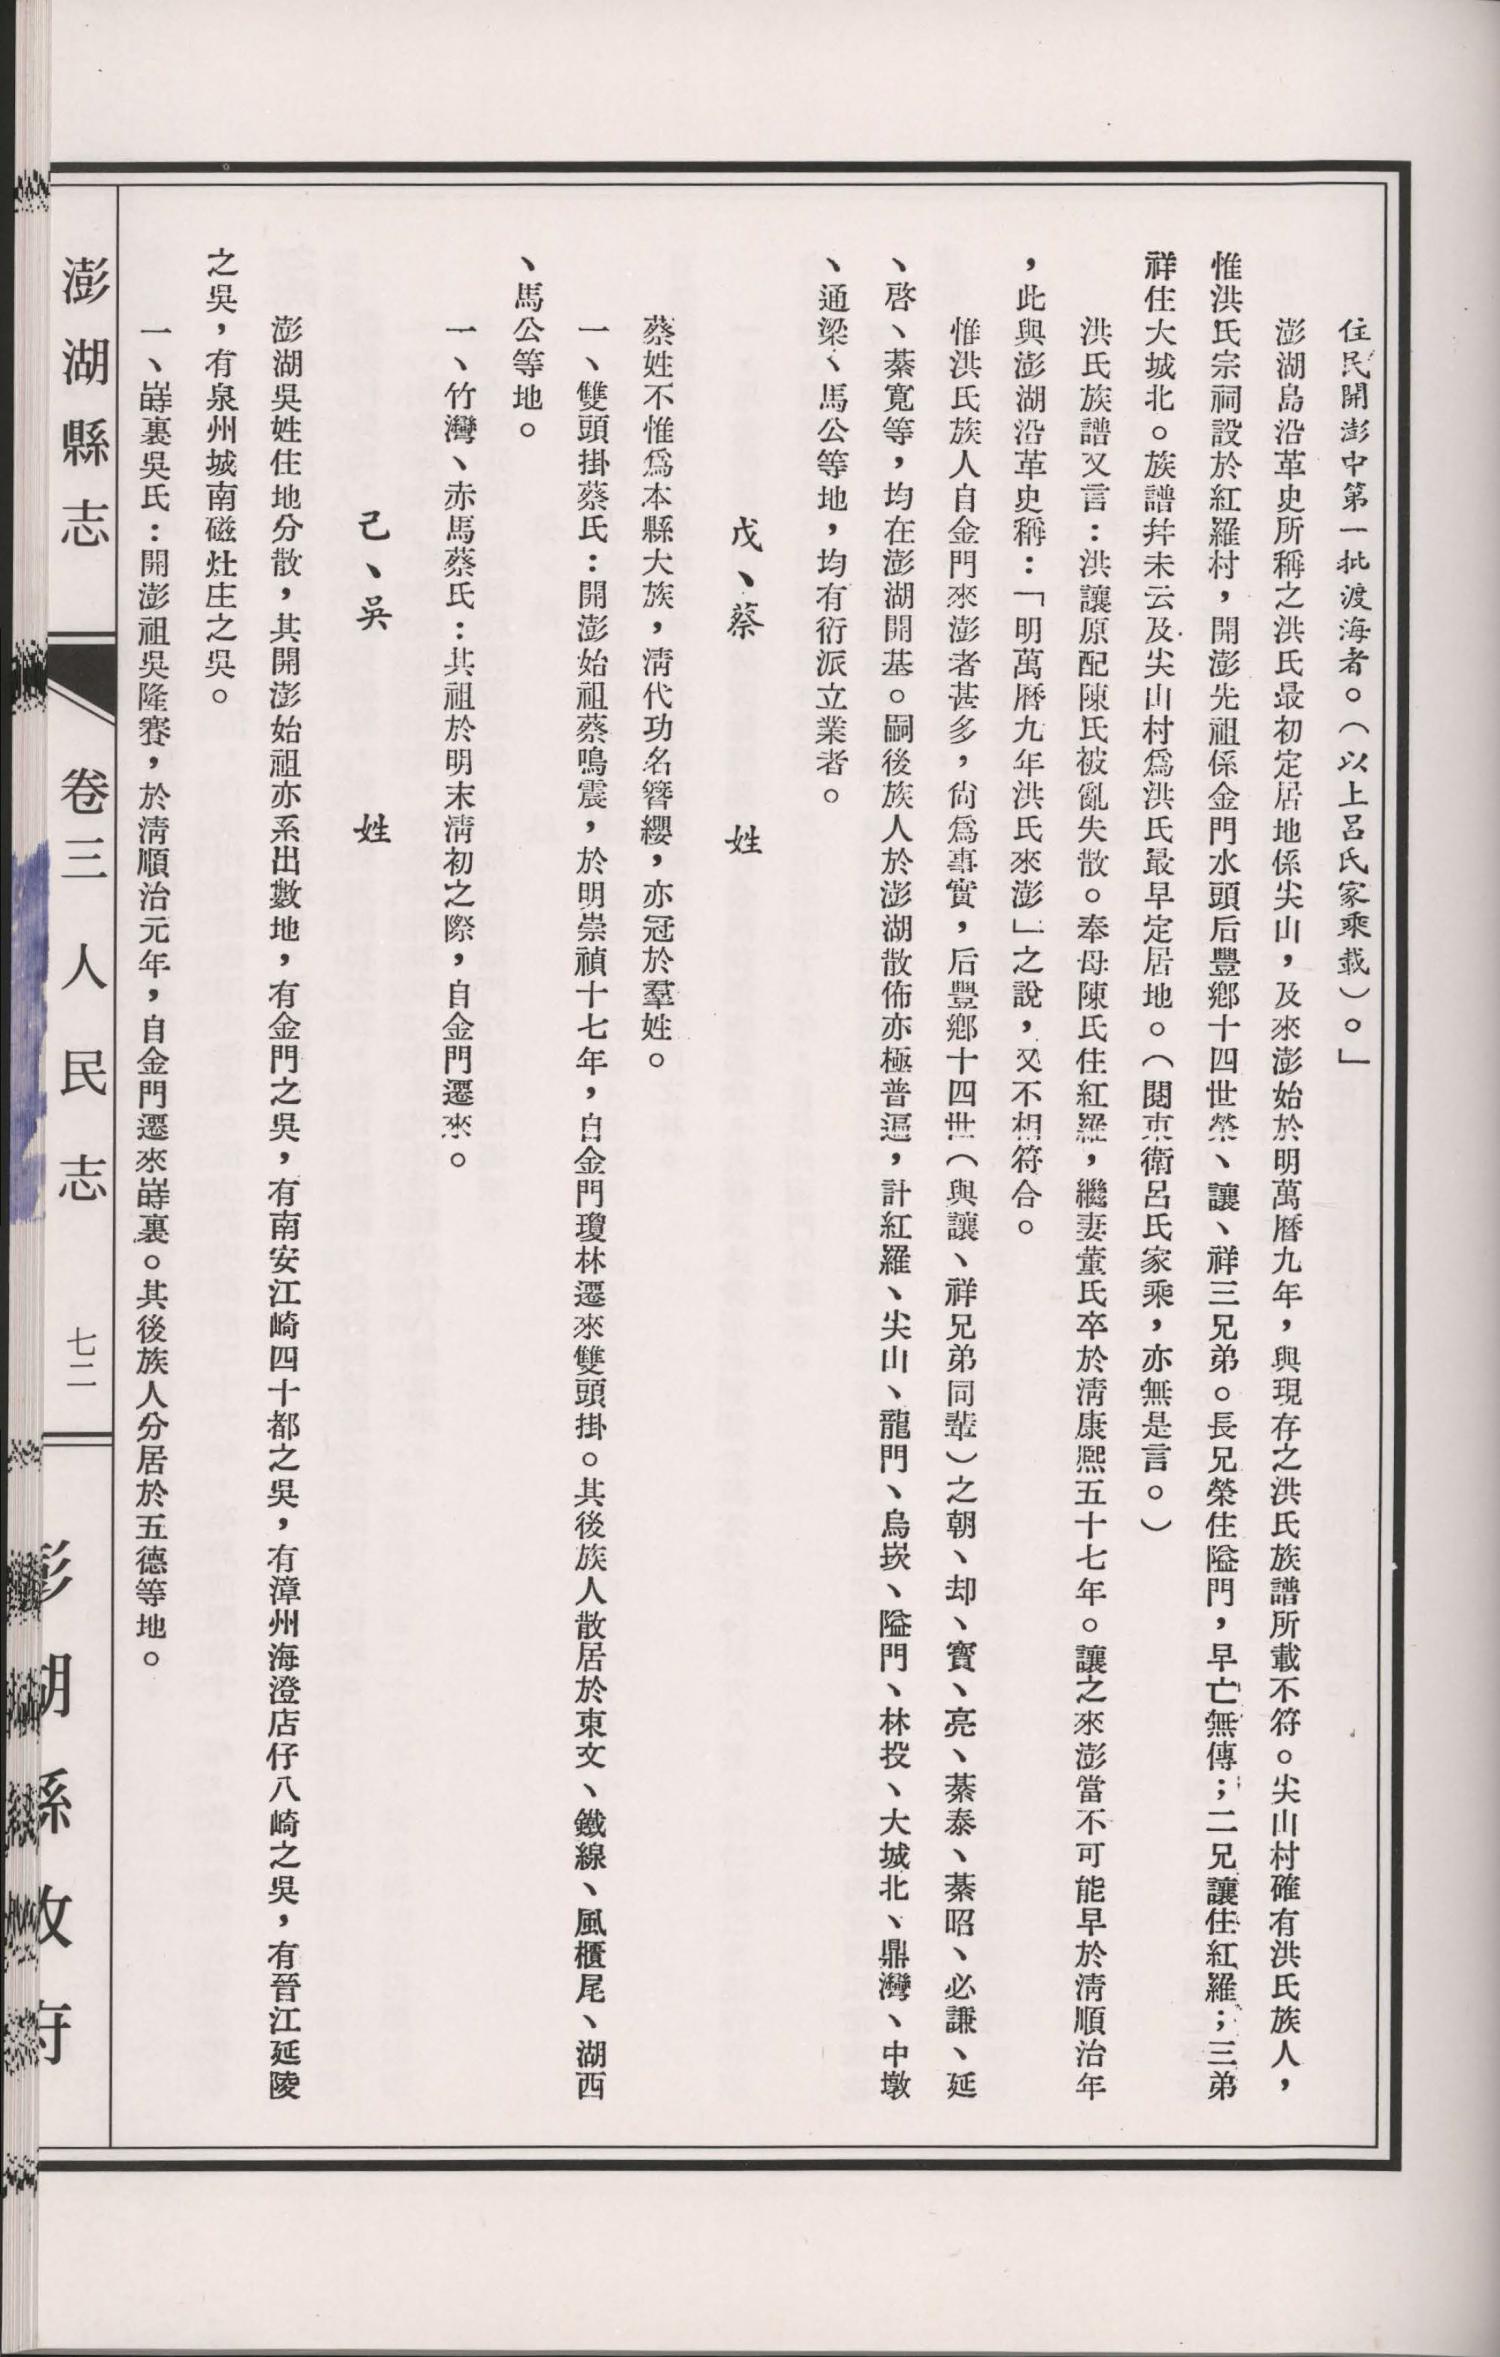 住民開澎中第一批渡海者。(以上呂氏家乘載)。」
澎湖島沿革史所稱之洪氏最初定居地係尖山,及來澎始於明萬曆九年,與現存之洪氏族譜所載不符。尖山村確有洪氏族人,
惟洪氏宗祠設於紅羅村,開澎先祖係金門水頭后豐鄉十四世榮、讓、祥三兄弟。長兄榮住隘門,早亡無傳;二兄讓住紅羅;三弟
祥住大城北。族譜幷未云及尖山村爲洪氏最早定居地。(閱東衛呂氏家乘,亦無是言。)
洪氏族譜又言:洪讓原配陳氏被亂失散。奉母陳氏住紅羅,繼妻董氏卒於清康熙五十七年。讓之來澎當不可能早於清順治年
,此與澎湖沿革史稱:「明萬曆九年洪氏來澎」之說,又不相符合。
惟洪氏族人自金門來澎者甚多,尙爲事實,后豐鄉十四世(與讓、祥兄弟同輩)之朝、却、寳、亮、綦泰、綦昭、必謙、延
、啓、綦寬等,均在澎湖開基。嗣後族人於澎湖散佈亦極普遍,計紅羅、尖山、龍門、烏崁、隘門、林投、大城北、鼎灣、中墩
、通梁、馬公等地,均有衍派立業者。
戊、蔡姓
蔡姓不惟爲本縣大族,淸代功名簪纓,亦冠於羣姓。
一、雙頭掛蔡氏:開澎始祖蔡鳴震,於明崇禎十七年,自金門瓊林遷來雙頭掛。其後族人散居於東文、鐵線、風櫃尾、湖西
、馬公等地。
一、竹灣、赤馬蔡氏:其祖於明末淸初之際,自金門遷來。
己、吳姓
澎湖吳姓住地分散,其開澎始祖亦系出數地,有金門之吳,有南安江崎四十都之吳,有漳州海澄店仔八崎之吳,有晉江延陵
之吳,有泉州城南磁灶庄之吳。
一、嵵裏吳氏:開澎祖吳隆賽,於淸順治元年,自金門遷來嵵裏。其後族人分居於五德等地。
澎湖縣志 卷三人民志 七二 澎湖縣政府